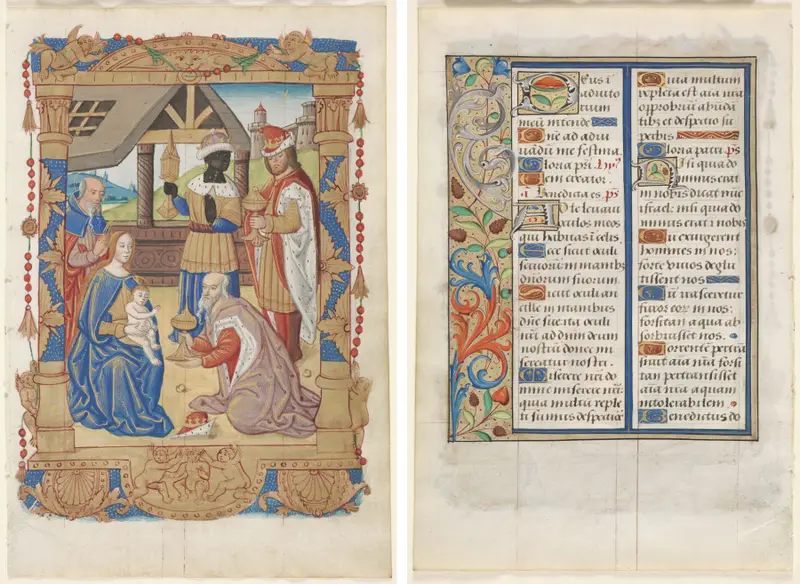 Deus i
adiuto
rium
meū intende
Dn̄e ad adiu
uādū me festina.
Gloria pr̄i. hy⁹
Ueni creator.
Benedicta es. ps̄
Ad te leuaui
oculos meos
qui habitas ī celis.
Ecce sicut oculi
seruorū in manibꝫ
dn̄orum suorum.
Sicut oculi an
cille in manibus
dn̄e sue ita oculi
nr̄i ad dn̄m deum
nostrū donec mi
sereatur nostri.
Miserere nr̄i do
mine miserere nr̄i
quia multū reple
ti sumus despectiōe
Quia multum
repleta est aīa nr̄a
opprobriū abūdā
tibꝫ et despectio su
perbis
Gloria patri ps̄
Nisi quia do
minus erat
in nobis dicat nūc
israel: nisi quia do
minus erat ī nobis
Cū exurgerent
homines in nos:
forte viuos deglu
tissent nos
Cū irasceretur
furor eorꝫ in nos:
forsitan aqua ab
sorbuisset nos.
Torrentē pertrā
siuit aīa nr̄a forsi
tan pertransisset
aīa nr̄a aquam
intolerabilem.
Benedictus do